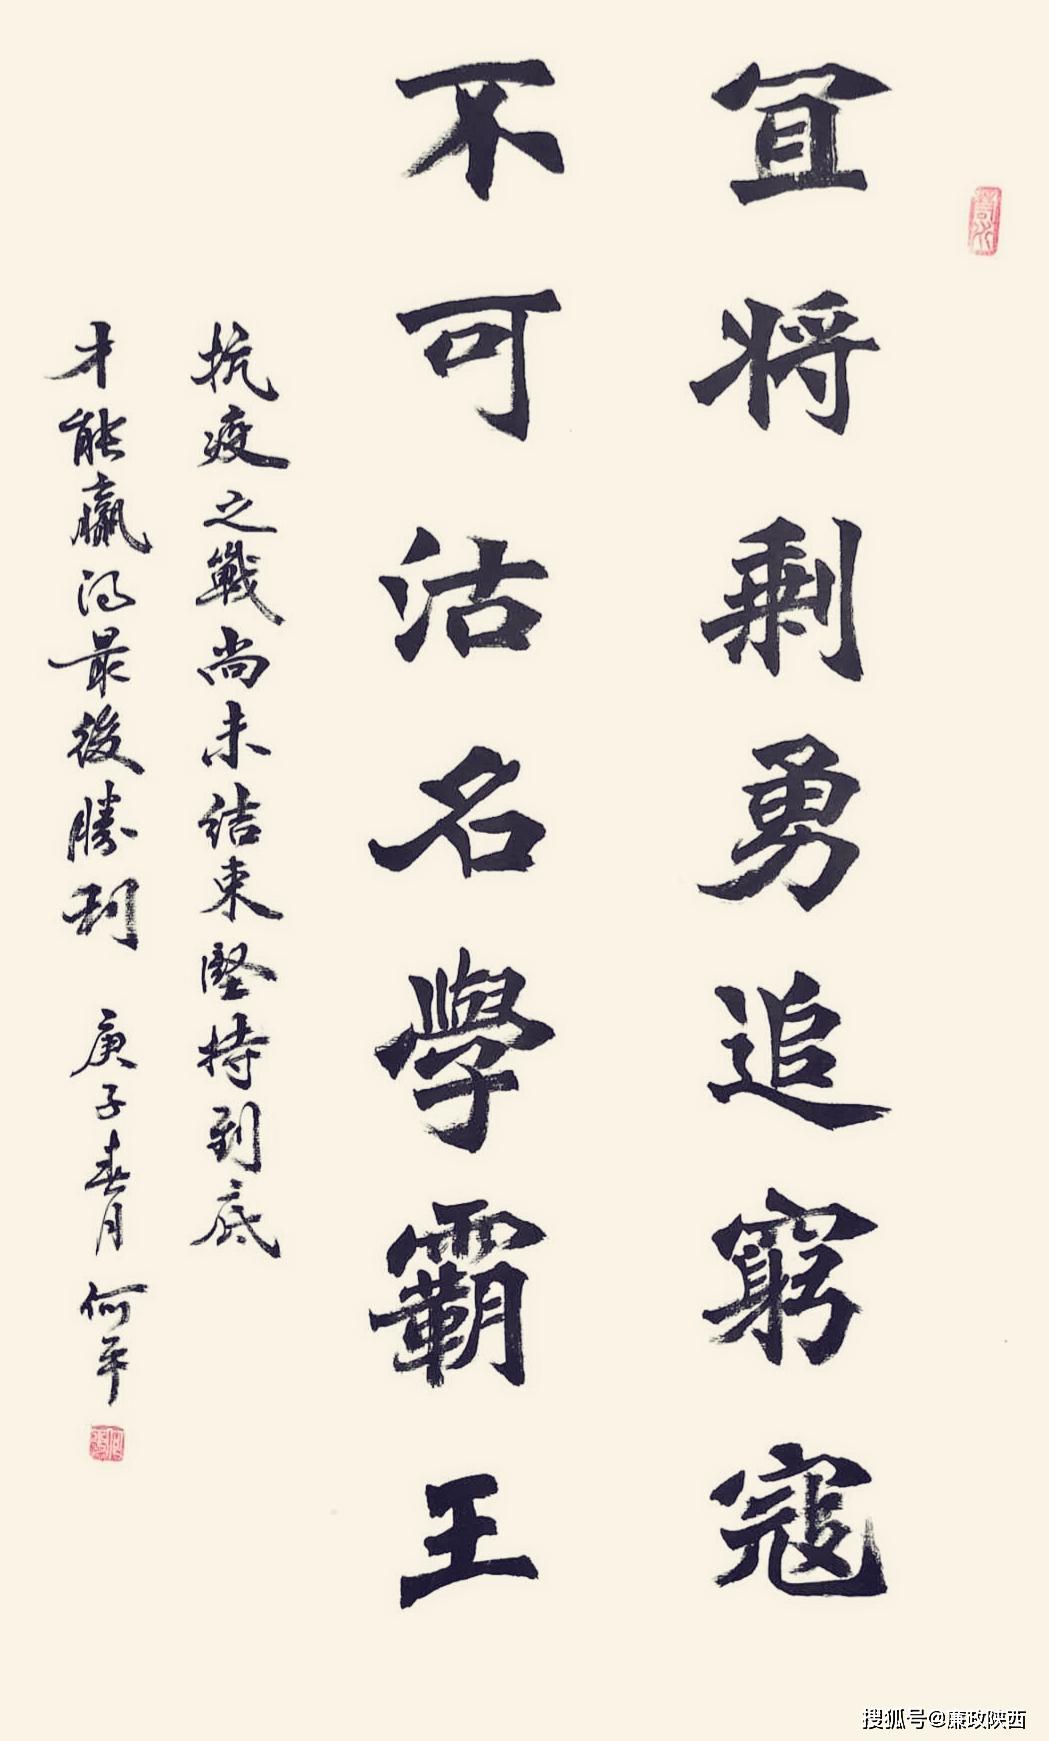 宜将剩勇追窮寇
不可沽名學霸王
抗疫之戰尚未结束堅持到底
才能贏得最後勝利 庚子春月 何平
搜狐号@廉政陕西